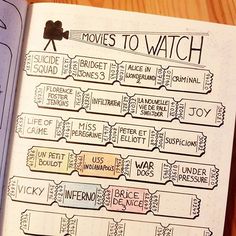 MOVIES TO WATCH
SUICIDE
SQUAD
BRIDGET
JONES 3
ALICE IN
WONDERLAND
CRIMINAL
FLORENCE
FOSTER
JENKINS
INFILTRATOR
LA NOUVELLE
VIE DE PAUL
SNEIJDER
JOY
LIFE OF
CRIME
MISS
PEREGRINE
PETER ET
ELLIOTT
SUSPICION
UN PETIT
BOULOT
USS
INDIANAPOLIS
WAR
DOGS
UNDER
PRESSURE
VICKY
INFERNO
BRICE
DE NICE